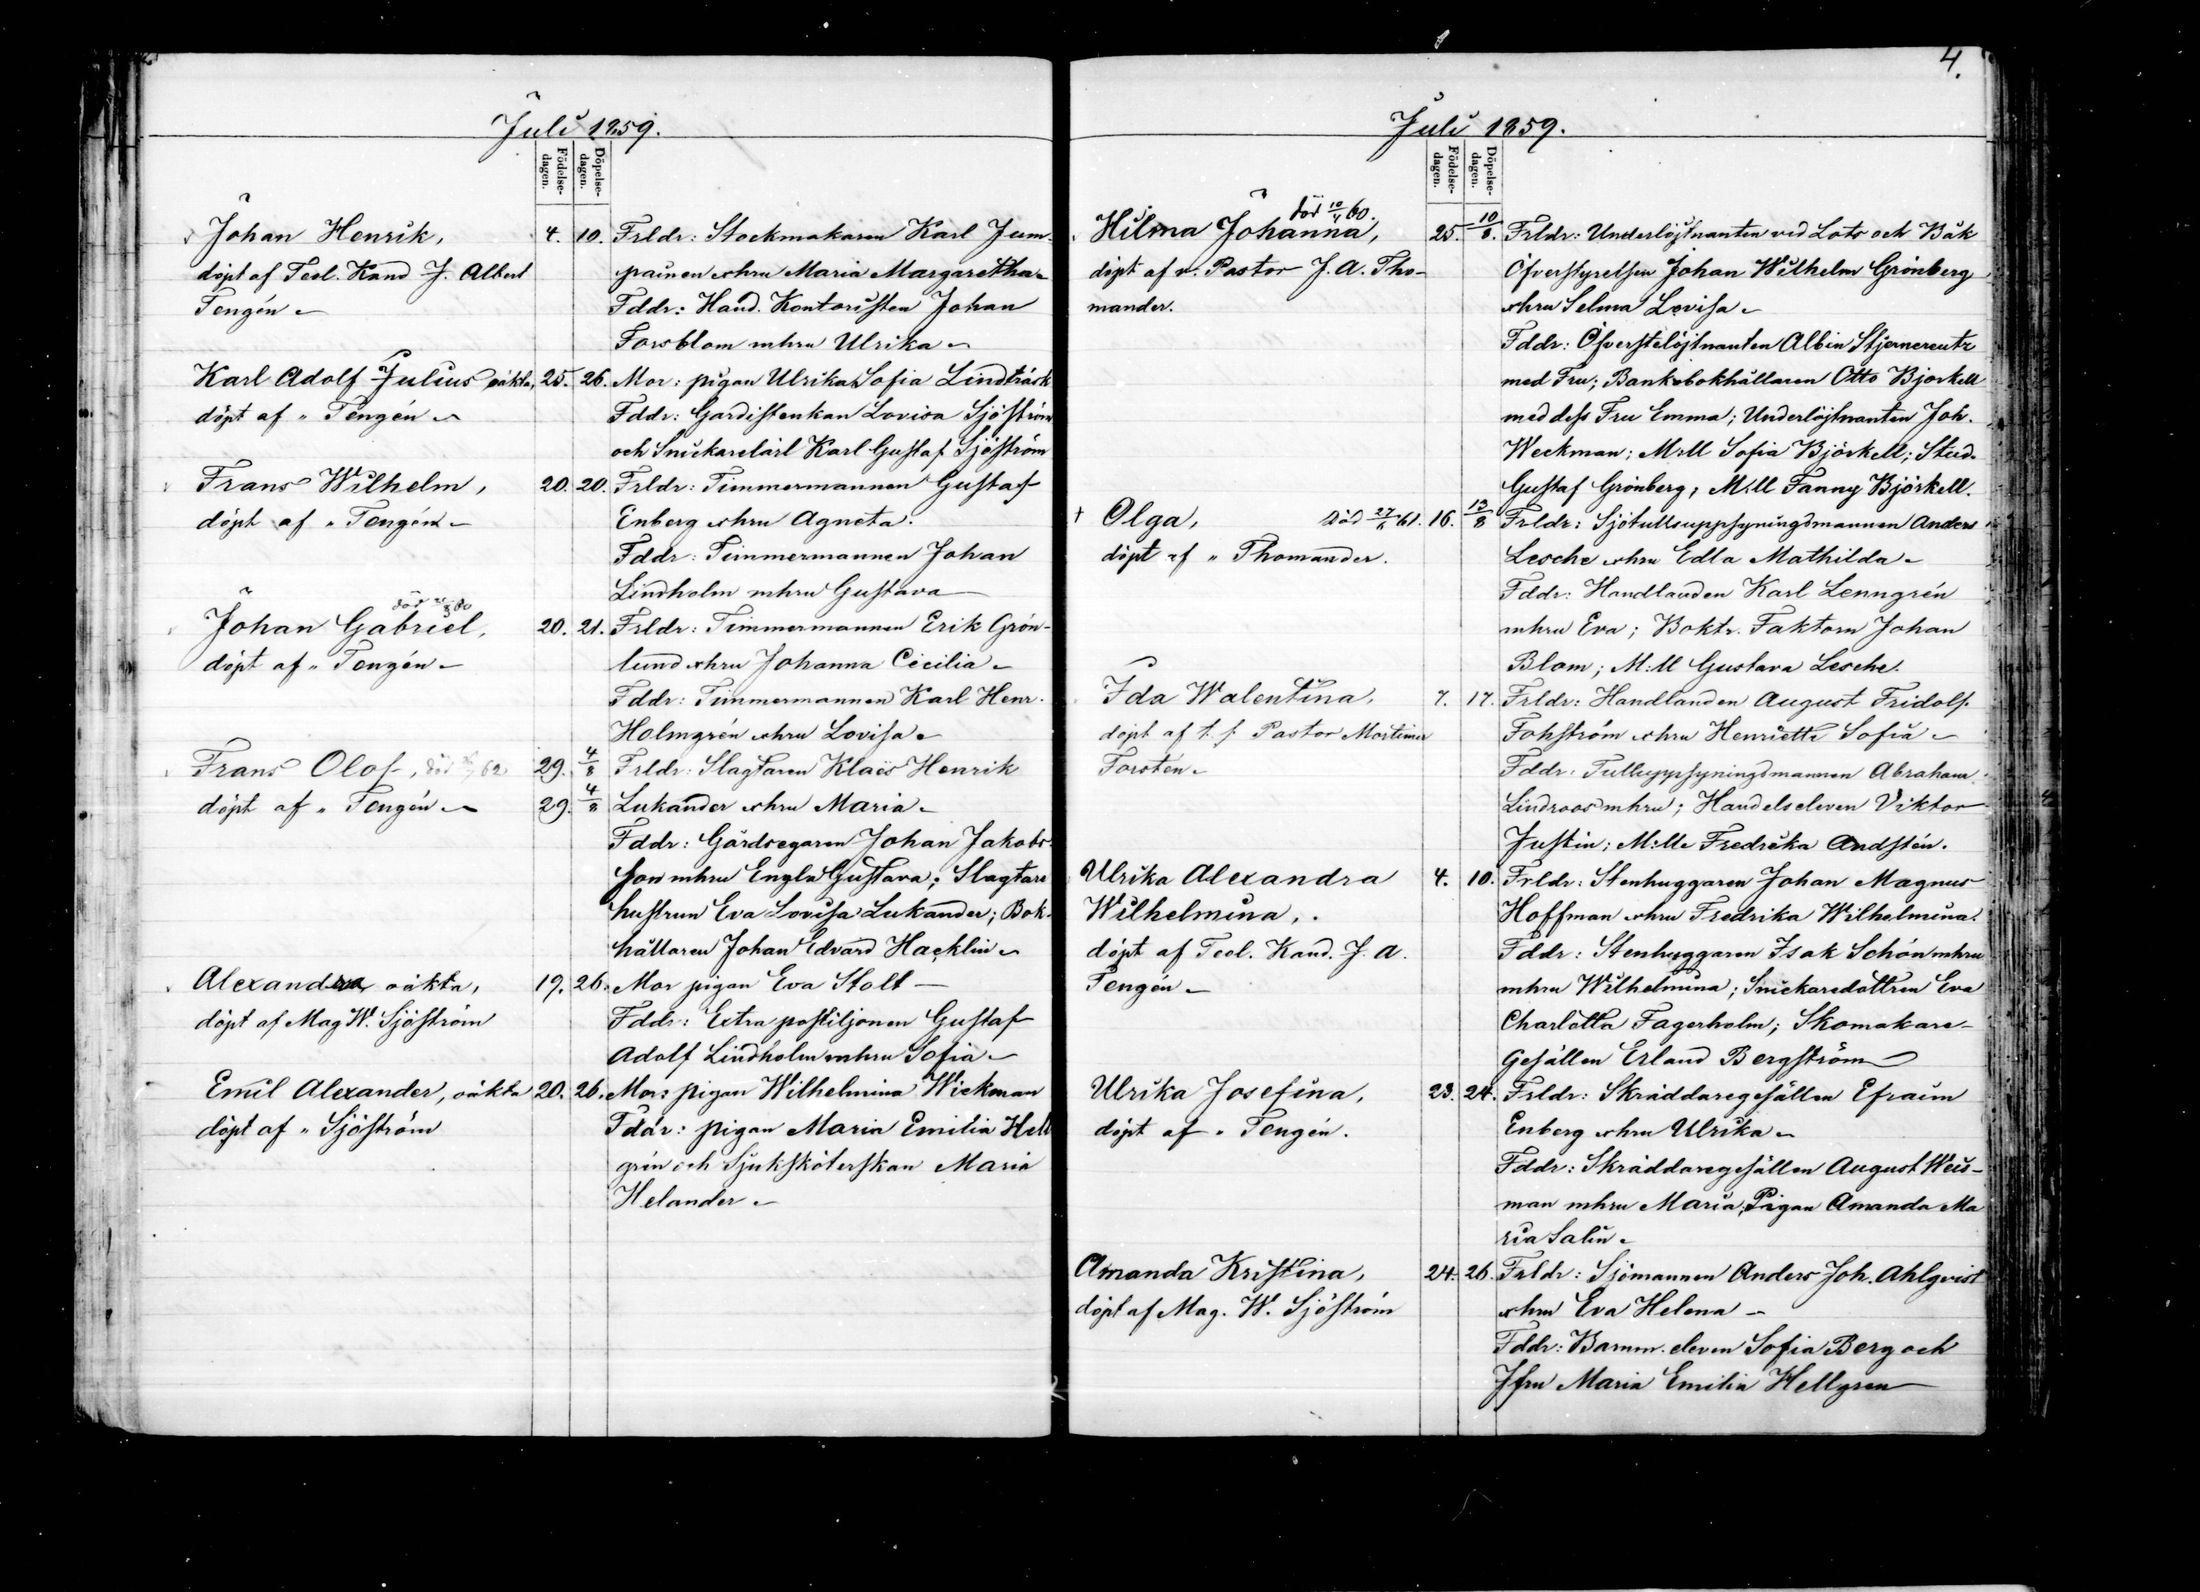 Juli 1859.
Födelse-dagen.
Döpelse-dagen.
Johan Henrik, 4. 10. Frldr: Stockmakaren Karl Jum-
döpt af Teol. Kand J. Albert painen o hru Maria Margaretha
Tengén Fddr: Hand. Kontoristen Johan
Forsblom mhru Ulrika
Karl Adolf Julius oäkta, 25. 26. Mor: pigan Ulrika Sofia Lindträsk
döpt af " Tengén Fddr: Gardistenkan Lovisa Sjöström
och Snickarelärl Karl Gustaf Sjöström
Frans Wilhelm, 20. 20. Frldr: Timmermannen Gustaf
döpt af " Tengén Enberg o hru Agneta.
Fddr: Timmermannen Johan
Lindholm mhru Gustava
död
Johan Gabriel, 20. 21. Frldr: Timmermannen Erik Grön-
döpt af " Tengén lund o hru Johanna Cecilia
Fddr: Timmermannen Karl Henr.
Holmgrén o hru Lovisa
Frans Olof, död 62 29. 4/8 Frldr: Slagtaren Klaës Henrik
döpt af " Tengén 29. 4/8 Lukander o hru Maria
Fddr: Gårdsegaren Johan Jakobs-
son mhru Engla Gustava; Slagtare
hustrun Eva Lovisa Lukander; Bok-
hållaren Johan Edvard Hacklin
Alexandra oäkta, 19. 26. Mor pigan Eva Stolt
döpt af Mag W. Sjöström Fddr: Extra postiljonen Gustaf
Adolf Lindholm mhru Sofia
Emil Alexander, oäkta 20. 26. Mor: pigan Wilhelmina Wickman
döpt af " Sjöström Fddr: pigan Maria Emilia Hell
grén och Sjuksköterskan Maria
Helander
4.
Juli 1859.
Födelse-dagen.
Döpelse-dagen.
död 10/4 60.
Hilma Johanna, 25. 10/8. Frldr: Underlöjtnanten vid Lots och Båk
döpt af v. Pastor J. A. Tho- Öfverstyrelsen Johan Wilhelm Grönberg
mander. o hru Selma Lovisa
Fddr: Öfverstelöjtnanten Albin Stjerncreutz
med Fru; Banksbokhållaren Otto Björkell
med dess Fru Emma; Underlöjtnanten Joh.
Weckman; Mll Sofia Björkell; Stud.
Gustaf Grönberg, M:ll Fanny Björkell.
† Olga, Död 27/6 61. 16. 13/8 Frldr: Sjötullsuppsyningsmannen Anders
döpt af " Thomander. Lesche o hru Edla Mathilda
Fddr: Handlanden Karl Lenngrén
mhru Eva; Boktr. Faktorn Johan
Blom; M:ll Gustava Lesche.
Ida Walentina, 7. 17. Frldr: Handlanden August Fridolf
döpt af t. f. Pastor Mortimer Fohström o hru Henriette Sofia
Forstén Fddr: Tulluppsyningsmannen Abraham
Lindroos mhru; Handelseleven Viktor
Justin; M:lle Fredrika Andstén.
Ulrika Alexandra 4. 10. Frldr: Stenhuggaren Johan Magnus
Wilhelmina, Hoffman o hru Fredrika Wilhelmina.
döpt af Teol. Kand. J. A. Fddr: Stenhuggaren Isak Schön mhru
Tengén mhru Wilhelmina; Snickaredottren Eva
Charlotta Fagerholm; Skomakare-
Gesällen Erland Bergström
Ulrika Josefina, 23. 24. Frldr: Skräddaregesällen Efraim
döpt af " Tengén. Enberg o hru Ulrika
Fddr: Skräddaregesällen August Weis-
man mhru Maria; Pigan Amanda Ma
ria Salin
Amanda Kristina, 24. 26. Frldr: Sjömannen Anders Joh. Ahlqvist
döpt af Mag. W. Sjöström o hru Eva Helena
Fddr: Barnm. eleven Sofia Berg och
Jfru Maria Emilia Hellgren